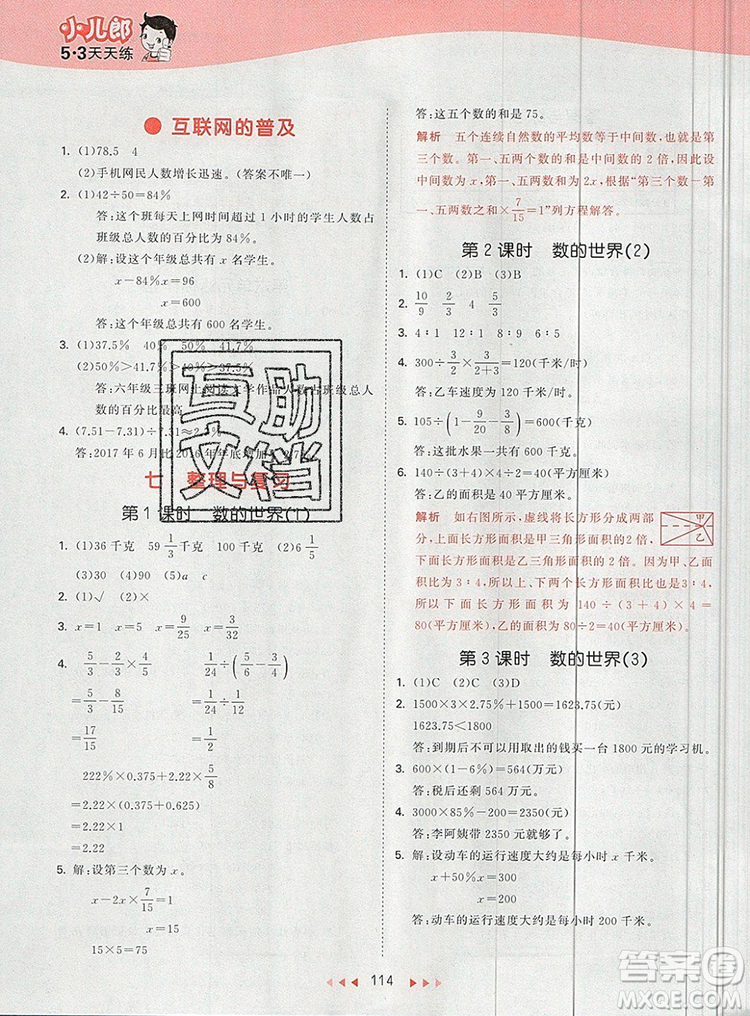 小儿郎
5·3天天练
互联网的普及
1. (1)78.5 4
(2)手机网民人数增长迅速。(答案不唯一)
2. (1)42÷50=84%
答:这个班每天上网时间超过 1 小时的学生人数占
班级总人数的百分比为 84%。
(2)解:设这个年级总共有 x 名学生。
x-84%x=96
x=600
答:这个年级总共有 600 名学生。
3. (1)37.5% 40% 50% 41.7%
(2)50%>41.7%>40%>37.5%
答:六年级三班网上阅读文学作品人数占班级总人
数的百分比最高
4. (7.51-7.31)÷7.31≈2.7%
答:2017 年 6 月比 2016 年年底增加 2.7%
七 整理与复习
第 1 课时 数的世界(1)
1. (1)36 千克 59 1/3 千克 100 千克 (2)6 1/3
(3)30 (4)90 (5)a c
2. (1)√ (2)×
3. x=1 x=5 x=9/25 x=3/32
4. 5/3-2/3×4/5 1/24÷(5/6-3/4)×1/2
=5/3-8/15 =1/24÷1/12×1/2
=17/15 =1/4
222%×0.375+2.22×5/8
=2.22×(0.375+0.625)
=2.22×1
=2.22
5. 解:设第三个数为 x。
x-2x×7/15=1
x=15
15×5=75
答:这五个数的和是 75。
解析 五个连续自然数的平均数等于中间数,也就是
第三个数。第一、五两个数的和是中间数的 2 倍,因此设
中间数为 x,第一、五两数的和为2x,根据“第三个数-第
一、五两数之和×7/15=1”列方程解答。
第 2 课时 数的世界(2)
1. (1)C (2)C
2. 10/9 2/3 4 5/3
3. 4∶1 12∶1 8∶9 6∶5
4. 300÷3/2×3/(2+3)=120(千米/时)
答:乙车速度为 120 千米/时。
5. 105÷(1-9/20-3/8)=600(千克)
答:这批水果一共有 600 千克。
6. 140÷(3+4)×4÷2=40(平方厘米)
答:乙的面积是 40 平方厘米。
解析 如右图所示,虚线将长方形分成两部分,
上面长方形面积是甲三角形面积的 2 倍,下面
长方形面积是乙三角形面积的 2 倍。因为甲、乙面积之
比为 3∶4,所以上、下两个长方形的面积之比为 3∶4,
所以下面长方形的面积为 140÷(3+4)×4=
80(平方厘米),乙的面积是 80÷2=40(平方厘米)。
甲
乙
第 3 课时 数的世界(3)
1. (1)C (2)C (3)D
2. 1500×3×2.75%+1500=1623.75(元)
1623.75<1800
答:到期后不可以用取出的钱买一台 1800 元的学习机。
3. 600×(1-6%)=564(万元)
答:税后还剩 564 万元。
4. 3000×85%-200=2350(元)
答:李阿姨带 2350 元就够了。
5. 解:设动车的运行速度大约是每小时 x 千米。
x+50%x=300
x=200
答:动车的运行速度大约是每小时 200 千米。
114
互助
文档
答案圈
MXQE.COM